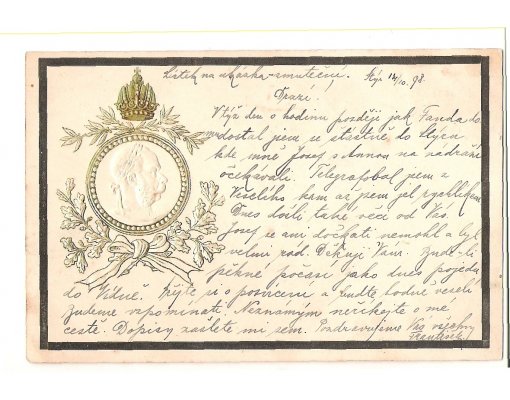 Lístek na ukázku - smuteční. Štýr 14/10. 98.
Drazí.
Týž den o hodinu později jak Fanda do
dostal jsem se šťastně do Štyru
kde mně Josef s Annou na nádraží
očekávali. Telegrafoval jsem z
Veselého kam až jsem jel rychlíkem
Dnes došli také věci od Vás.
Josef se ani dočkati nemohl a byl
velmi rád. Děkuji Vám. Bude-li
pěkné počasí jako dnes pojedu
do Vídně. Mějte se o posvícení a buďte hodně veselí
budeme vzpomínat. Neznámým neříkejte o mé
cestě. Dopisy zašlete mi sem. Pozdravujeme Vás všechny
František